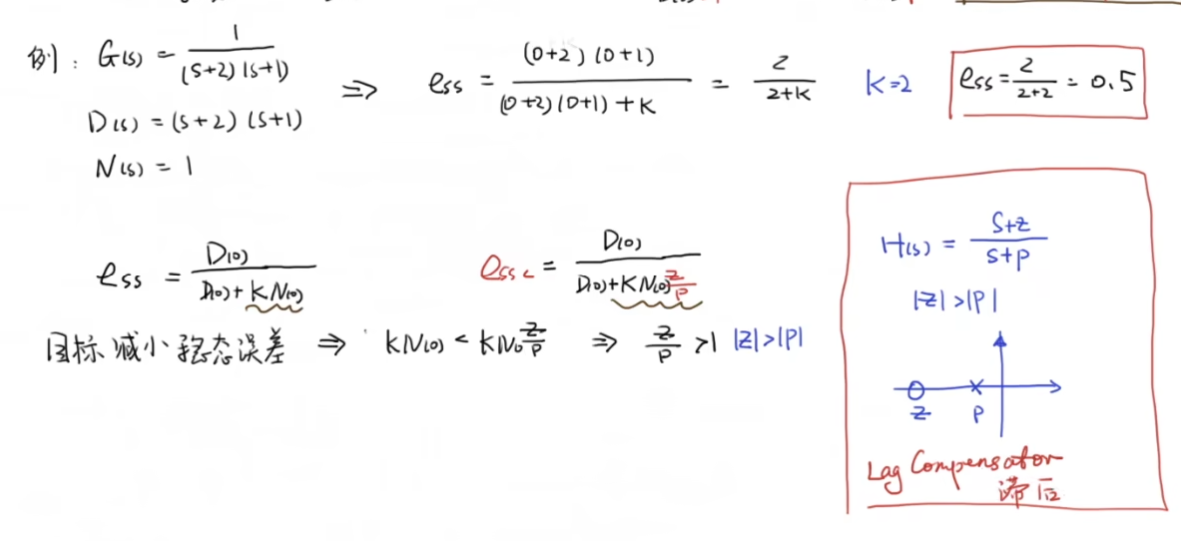 例: G(s) = 1/((s+2)(s+1)) ⇒ ess = ((0+2)(0+1))/((0+2)(0+1)+K) = 2/(2+K) K=2 ess = 2/(2+2) = 0.5
D(s) = (s+2)(s+1)
N(s) = 1
ess = D(0)/(D(0)+KN(0)) essc = D(0)/(D(0)+KN(0) z/p)
目标减小稳态误差 ⇒ KN(0) < KN0 z/p ⇒ z/p >1 |z|>|p|
H(s) = (s+z)/(s+p)
|z|>|p|
z p
Lag Compensator
滞后